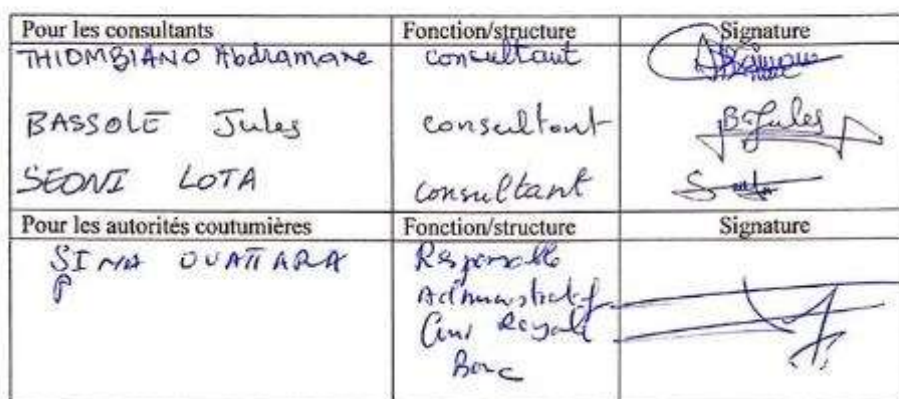 Pour les consultants Fonction/structure Signature
THIOMBIANO Abdramane consultant
BASSOLE Jules consultant B Jules
SEONI LOTA consultant
Pour les autorités coutumières Fonction/structure Signature
SIMA OUATTARA Responsable
P Administratif
Cour Royale